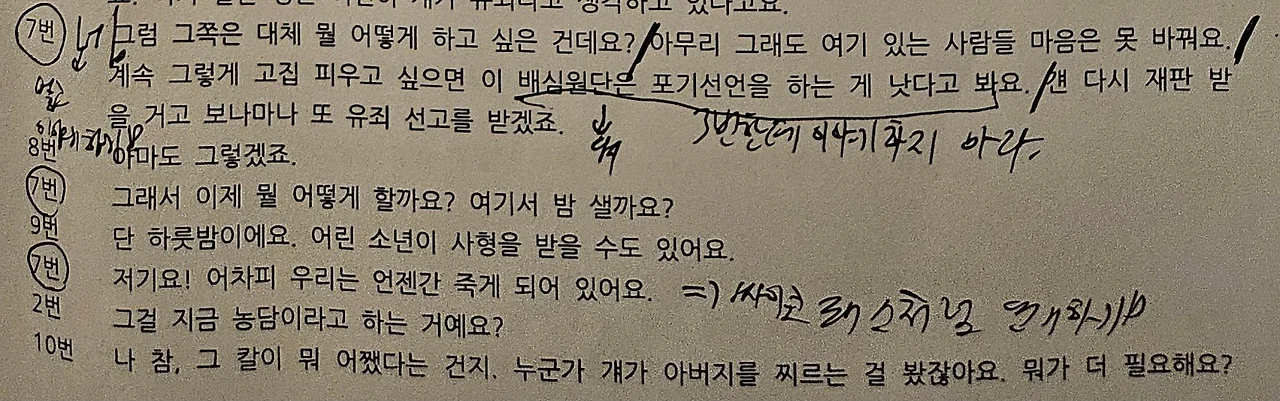 7번 그럼 그쪽은 대체 뭘 어떻게 하고 싶은 건데요? 아무리 그래도 여기 있는 사람들 마음은 못 바꿔요.
계속 그렇게 고집 피우고 싶으면 이 배심원단은 포기선언을 하는 게 낫다고 봐요. 걘 다시 재판 받
을 거고 보나마나 또 유죄 선고를 받겠죠.
8번 아마도 그렇겠죠.
7번 그래서 이제 뭘 어떻게 할까요? 여기서 밤 샐까요?
9번 단 하룻밤이에요. 어린 소년이 사형을 받을 수도 있어요.
7번 저기요! 어차피 우리는 언젠간 죽게 되어 있어요. =>
2번 그걸 지금 농담이라고 하는 거예요?
10번 나 참, 그 칼이 뭐 어쨌다는 건지. 누군가 걔가 아버지를 찌르는 걸 봤잖아요. 뭐가 더 필요해요?